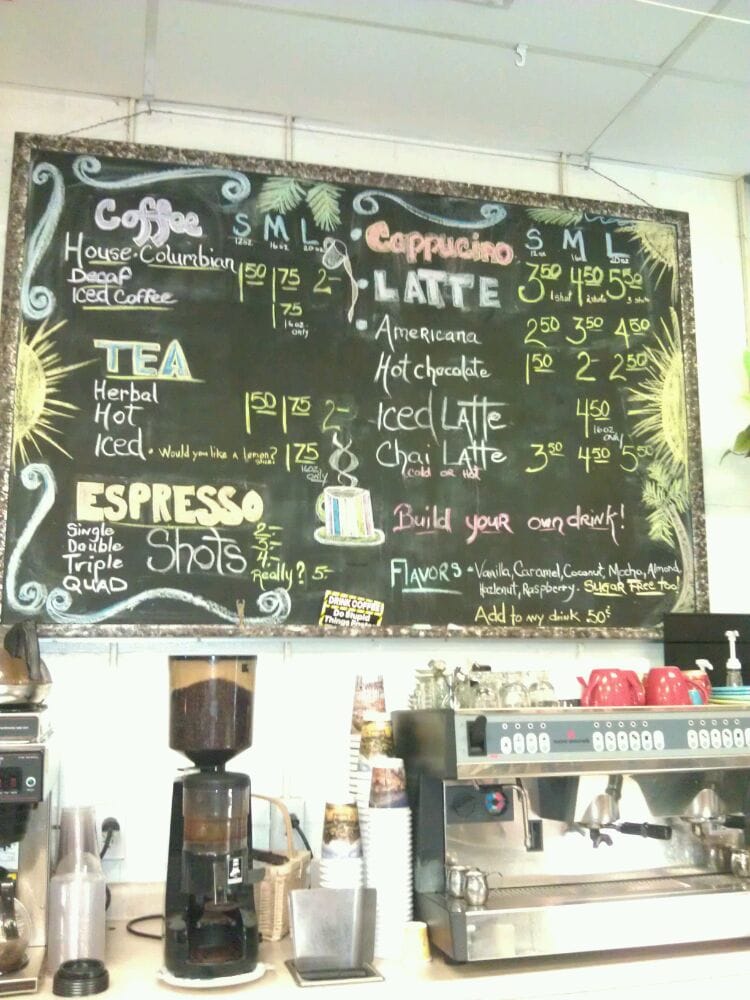 Coffee S M L
12oz 16oz 20oz
House · Columbian
Decaf 1 50 1 75 2-
Iced Coffee
1 75
16oz only
TEA
Herbal
Hot 1 50 1 75 2-
Iced · Would you like a lemon? 1 75
16oz only
ESPRESSO
Shots
Single 2-
Double 3-
Triple 4-
QUAD Really? 5-
· Cappucino S M L
12oz 16 20oz
· LATTE 3 50 4 50 5 50
1 shot 2 shots 3 shots
· Americana 2 50 3 50 4 50
Hot chocolate 1 50 2- 2 50
Iced LATTE 4 50
16oz only
Chai LATTE 3 50 4 50 5 50
Cold or Hot
Build your own drink!
FLAVORS - Vanilla, Caramel, Coconut, Mocha, Almond,
Hazlenut, Raspberry. Sugar Free too
Add to any drink 50¢
DRINK COFFEE
Do Stupid
Things